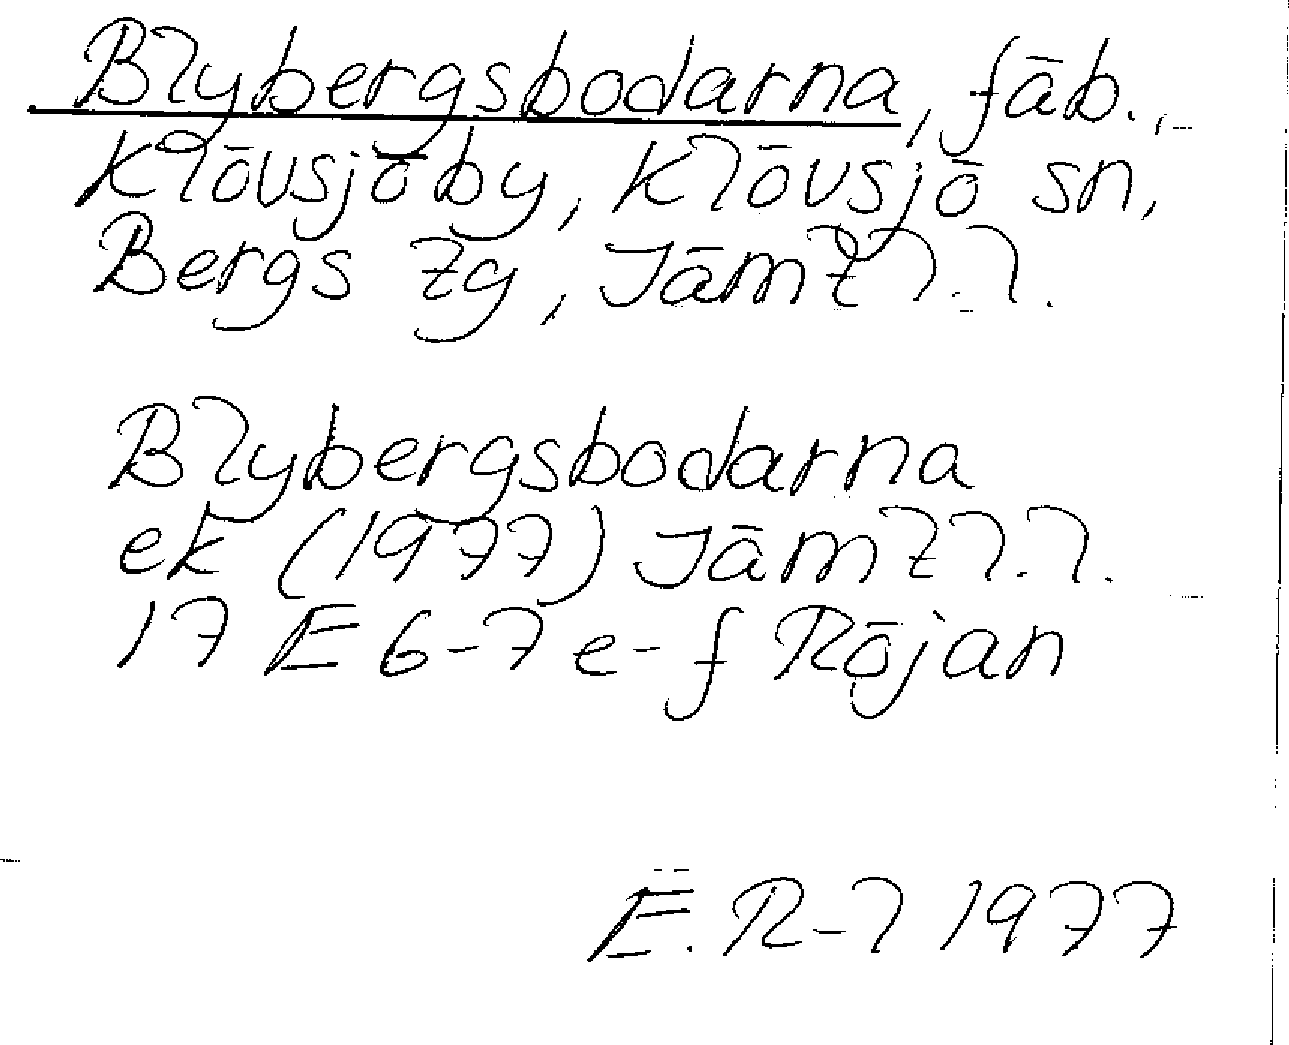 Blybergsbodarna, fäb.,
Klövsjö by, Klövsjö sn,
Bergs tg, Jämtl.l.
Blybergsbodarna
ek (1977) Jämtl.l.
17 E 6-7 e-f Röjan
E. R-l 1977